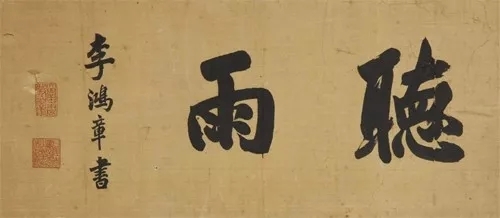 聽雨
李鴻章書